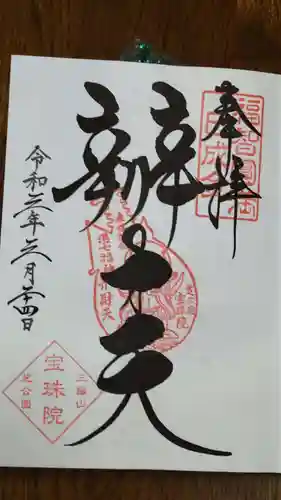 奉拝
辨才天
令和三年三月二十四日
三縁山
宝珠院
芝公園